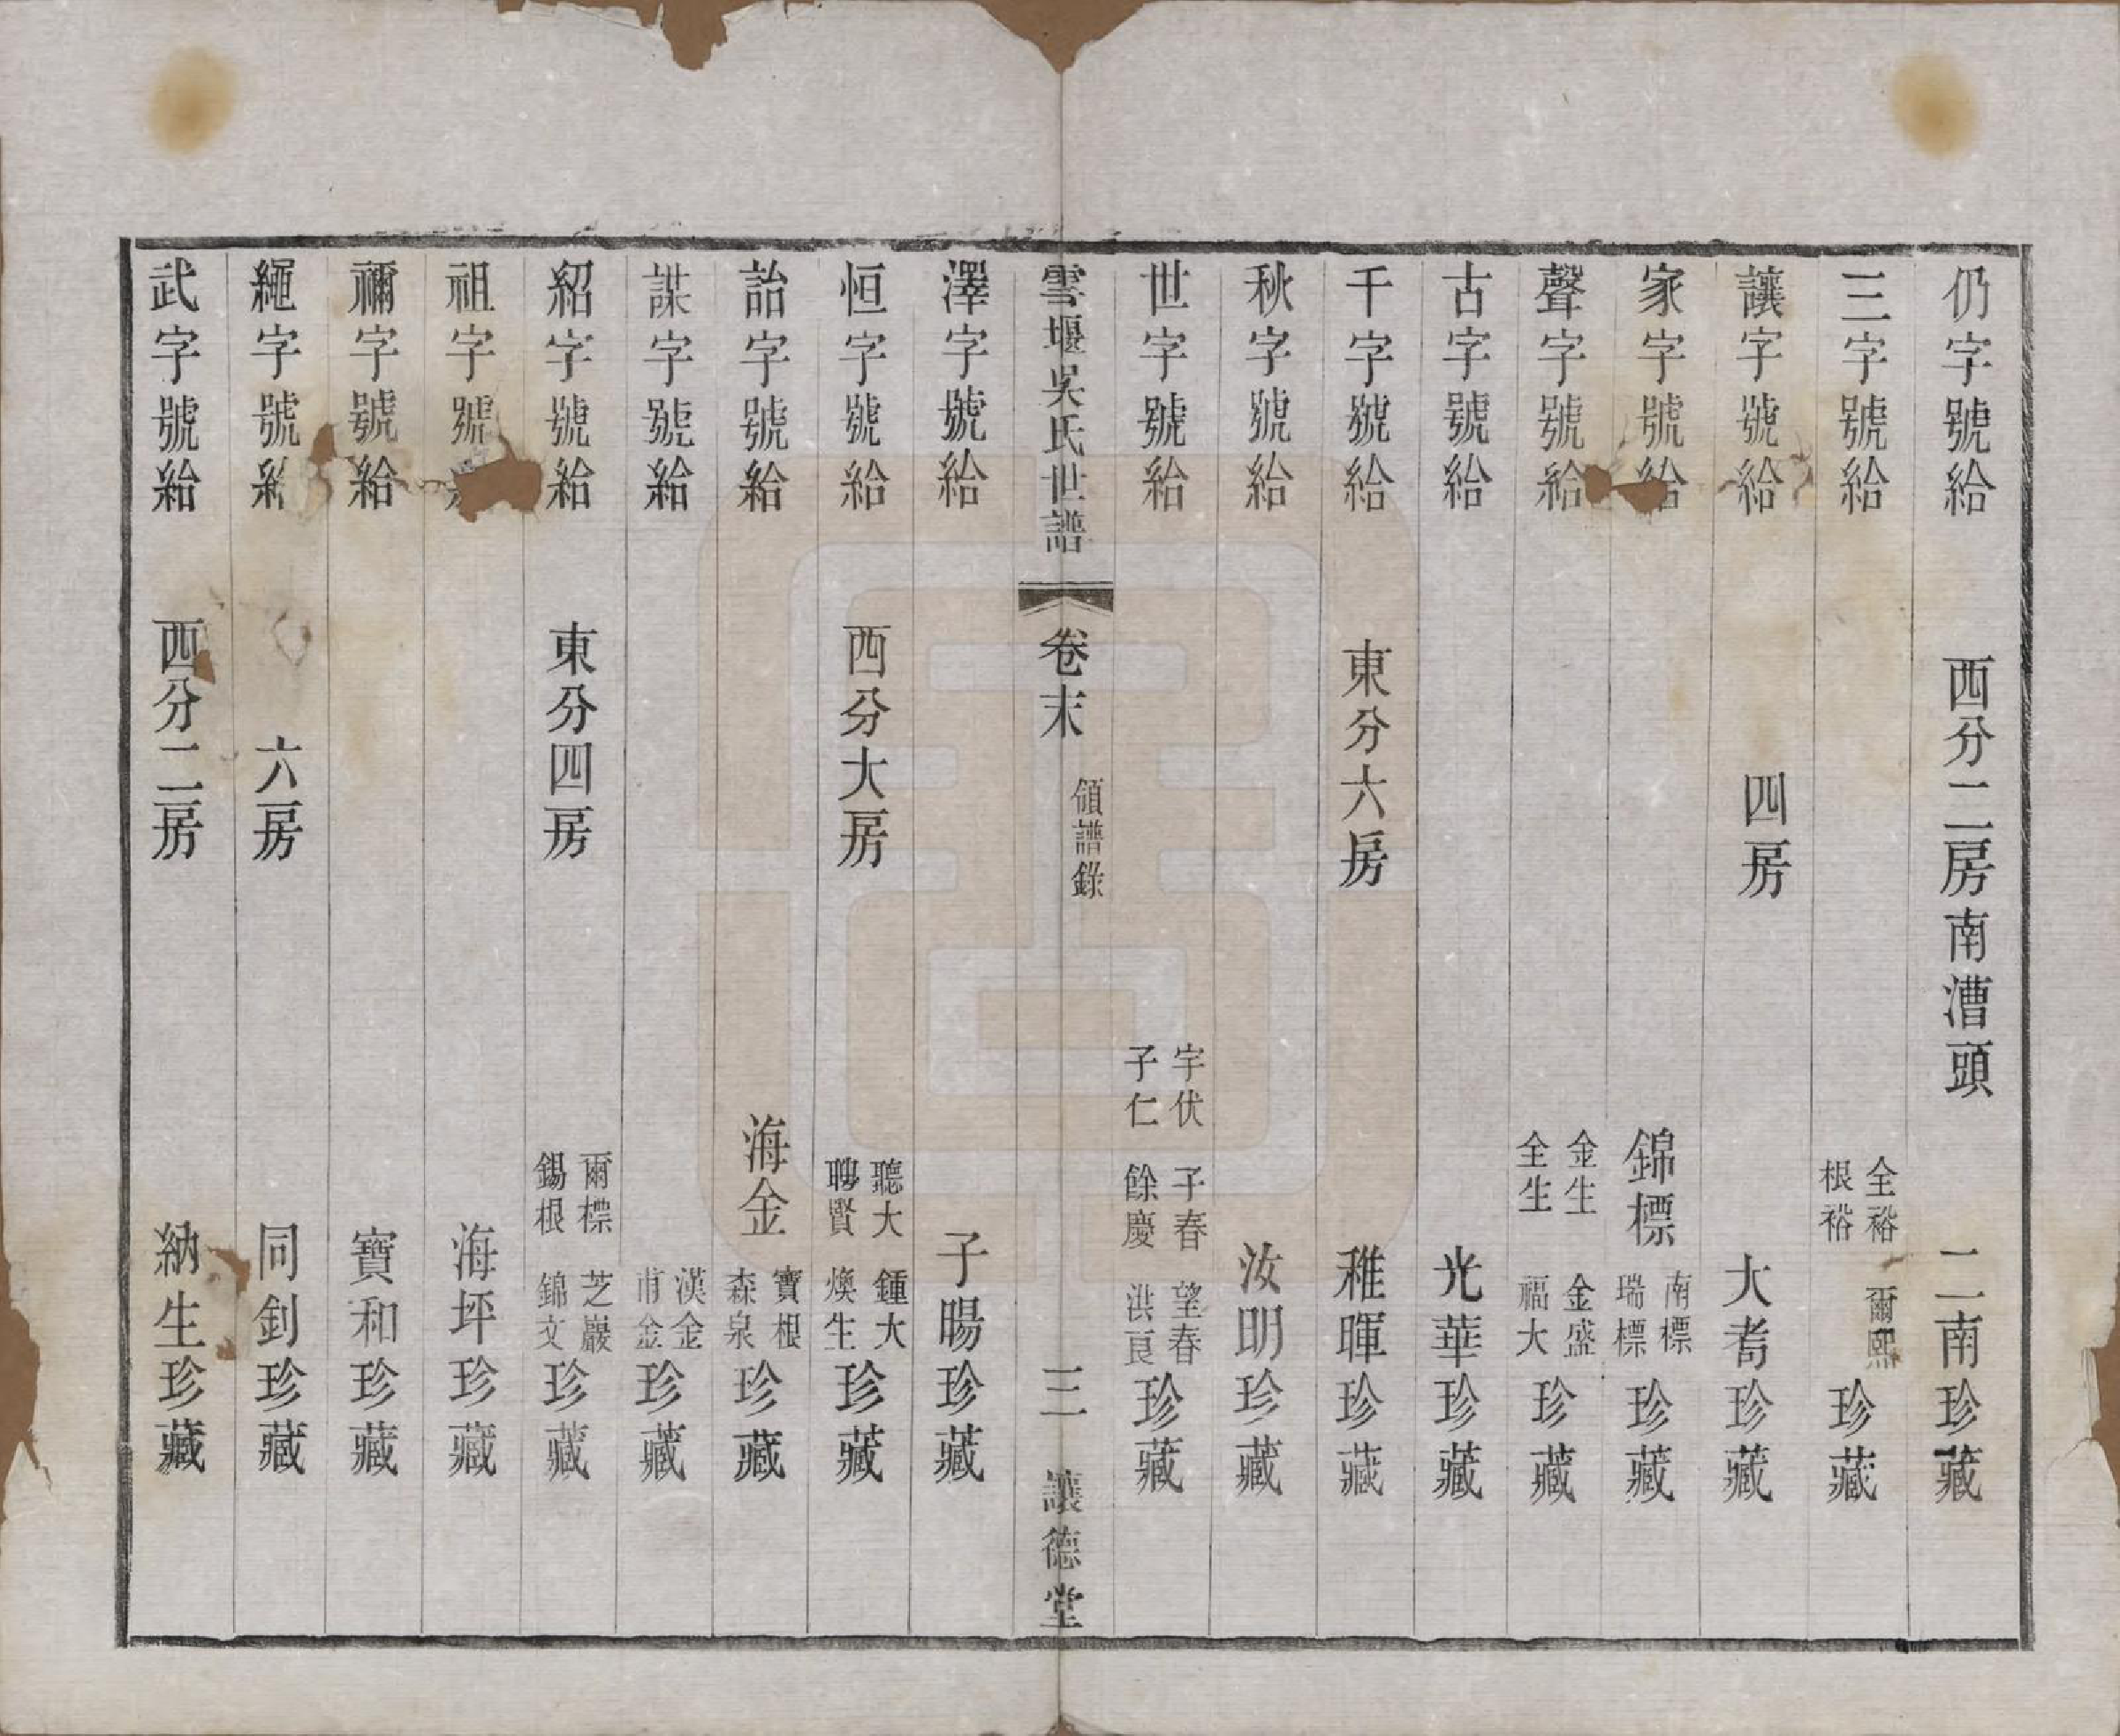 仍字號給 西分二房南漕頭 二南珍藏
三字號給 全裕 根裕 爾熙 珍藏
讓字號給 四房 大耈珍藏
家字號給 錦標 南標 瑞標 珍藏
聲字號給 金生 全生 金盛 福大 珍藏
古字號給 光華珍藏
千字號給 東分六房 稚暉珍藏
秋字號給 汝明珍藏
世字號給 宇伏 子仁 子春 餘慶 望春 洪良 珍藏
雲堰吳氏世譜 卷末 領譜錄 三 讓德堂
澤字號給 子暘珍藏
恒字號給 西分大房 聽大 聘賢 鍾大 煥生 珍藏
詒字號給 海金 寶根 森泉 珍藏
謀字號給 漢金 甫金 珍藏
紹字號給 東分四房 爾標 錫根 芝巖 錦文 珍藏
祖字號 海坪珍藏
禰字號給 寶和珍藏
繩字號給 六房 同釗珍藏
武字號給 西分二房 納生珍藏